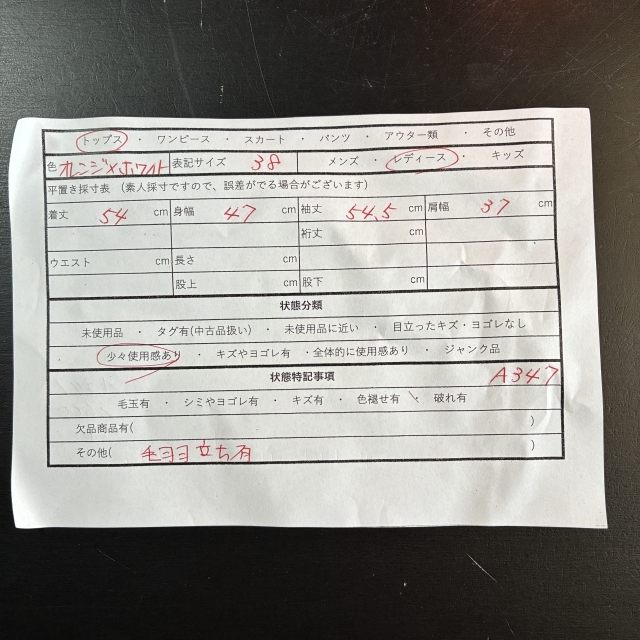 トップス ・ ワンピース ・ スカート ・ パンツ ・ アウター類 ・ その他
色 オレンジ×ホワイト 表記サイズ 38 メンズ ・ レディース ・ キッズ
平置き採寸表 (素人採寸ですので、誤差がでる場合がございます)
着丈 54 cm 身幅 47 cm 袖丈 54.5 cm 肩幅 37 cm
裄丈 cm
ウエスト cm 長さ cm
股上 cm 股下 cm
状態分類
未使用品 ・ タグ有(中古品扱い) ・ 未使用品に近い ・ 目立ったキズ・ヨゴレなし
・ 少々使用感あり ・ キズやヨゴレ有 ・全体的に使用感あり ・ ジャンク品
状態特記事項 A347
毛玉有 ・ シミやヨゴレ有 ・ キズ有 ・ 色褪せ有 ・ 破れ有
欠品商品有( )
その他( 毛ヨヨ立ち有 )